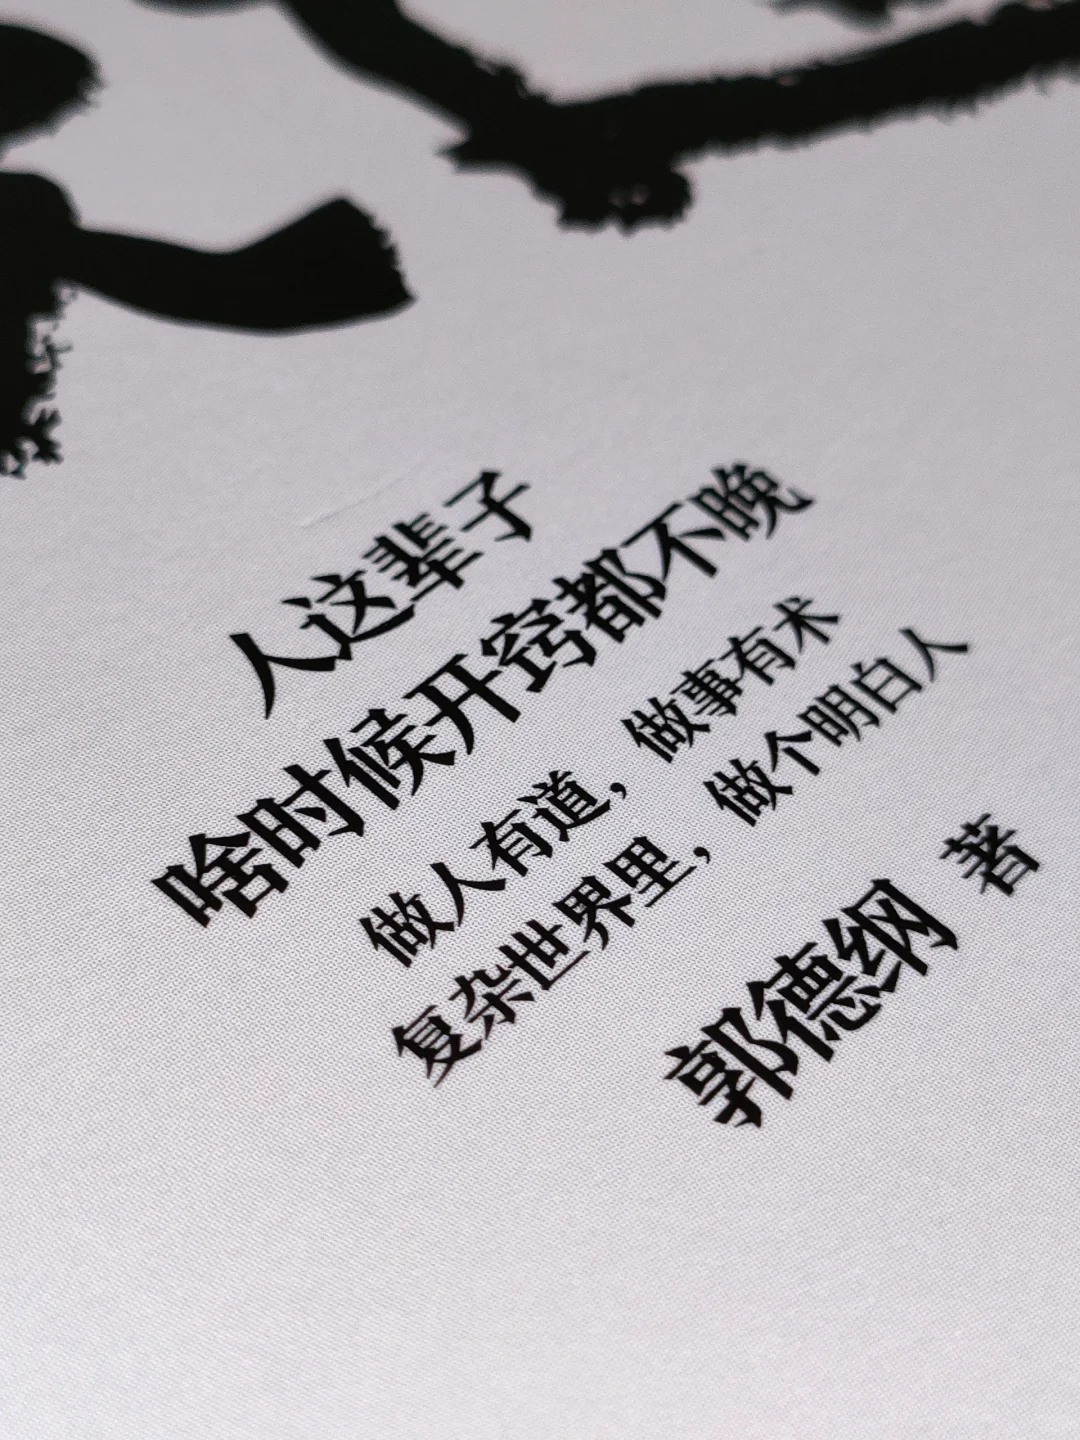 人这辈子
啥时候开窍都不晚
做人有道，做事有术
复杂世界里，做个明白人
郭德纲 著